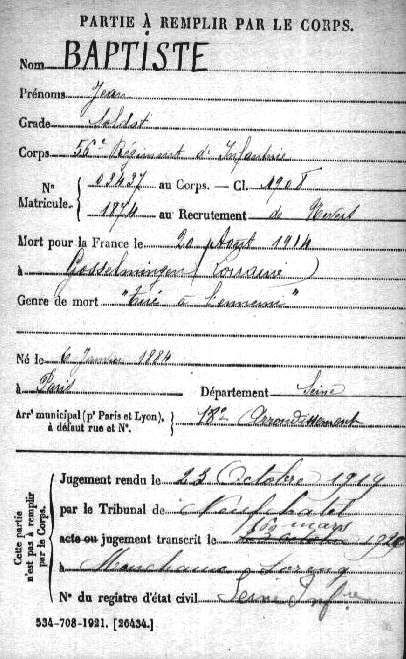 PARTIE À REMPLIR PAR LE CORPS.
Nom BAPTISTE
Prénoms Jean
Grade Soldat
Corps 56e Régiment d'Infanterie
N° Matricule. { 03437 au Corps. — Cl. 1908
1874 au Recrutement de Nevers
Mort pour la France le 20 Août 1914
à Gosselmingen (Lorraine)
Genre de mort "Tué à l'ennemi"
Né le 6 Janvier 1884
à Paris Département Seine
Arrt municipal (pr Paris et Lyon), à défaut rue et N°. } 13e Arrondissement
Cette partie n'est pas à remplir par le Corps.
Jugement rendu le 23 Octobre 1919
par le Tribunal de Neufchatel
16 mars
acte ou jugement transcrit le 1920
à
N° du registre d'état civil Seine Infre
534-708-1921. [26434.]